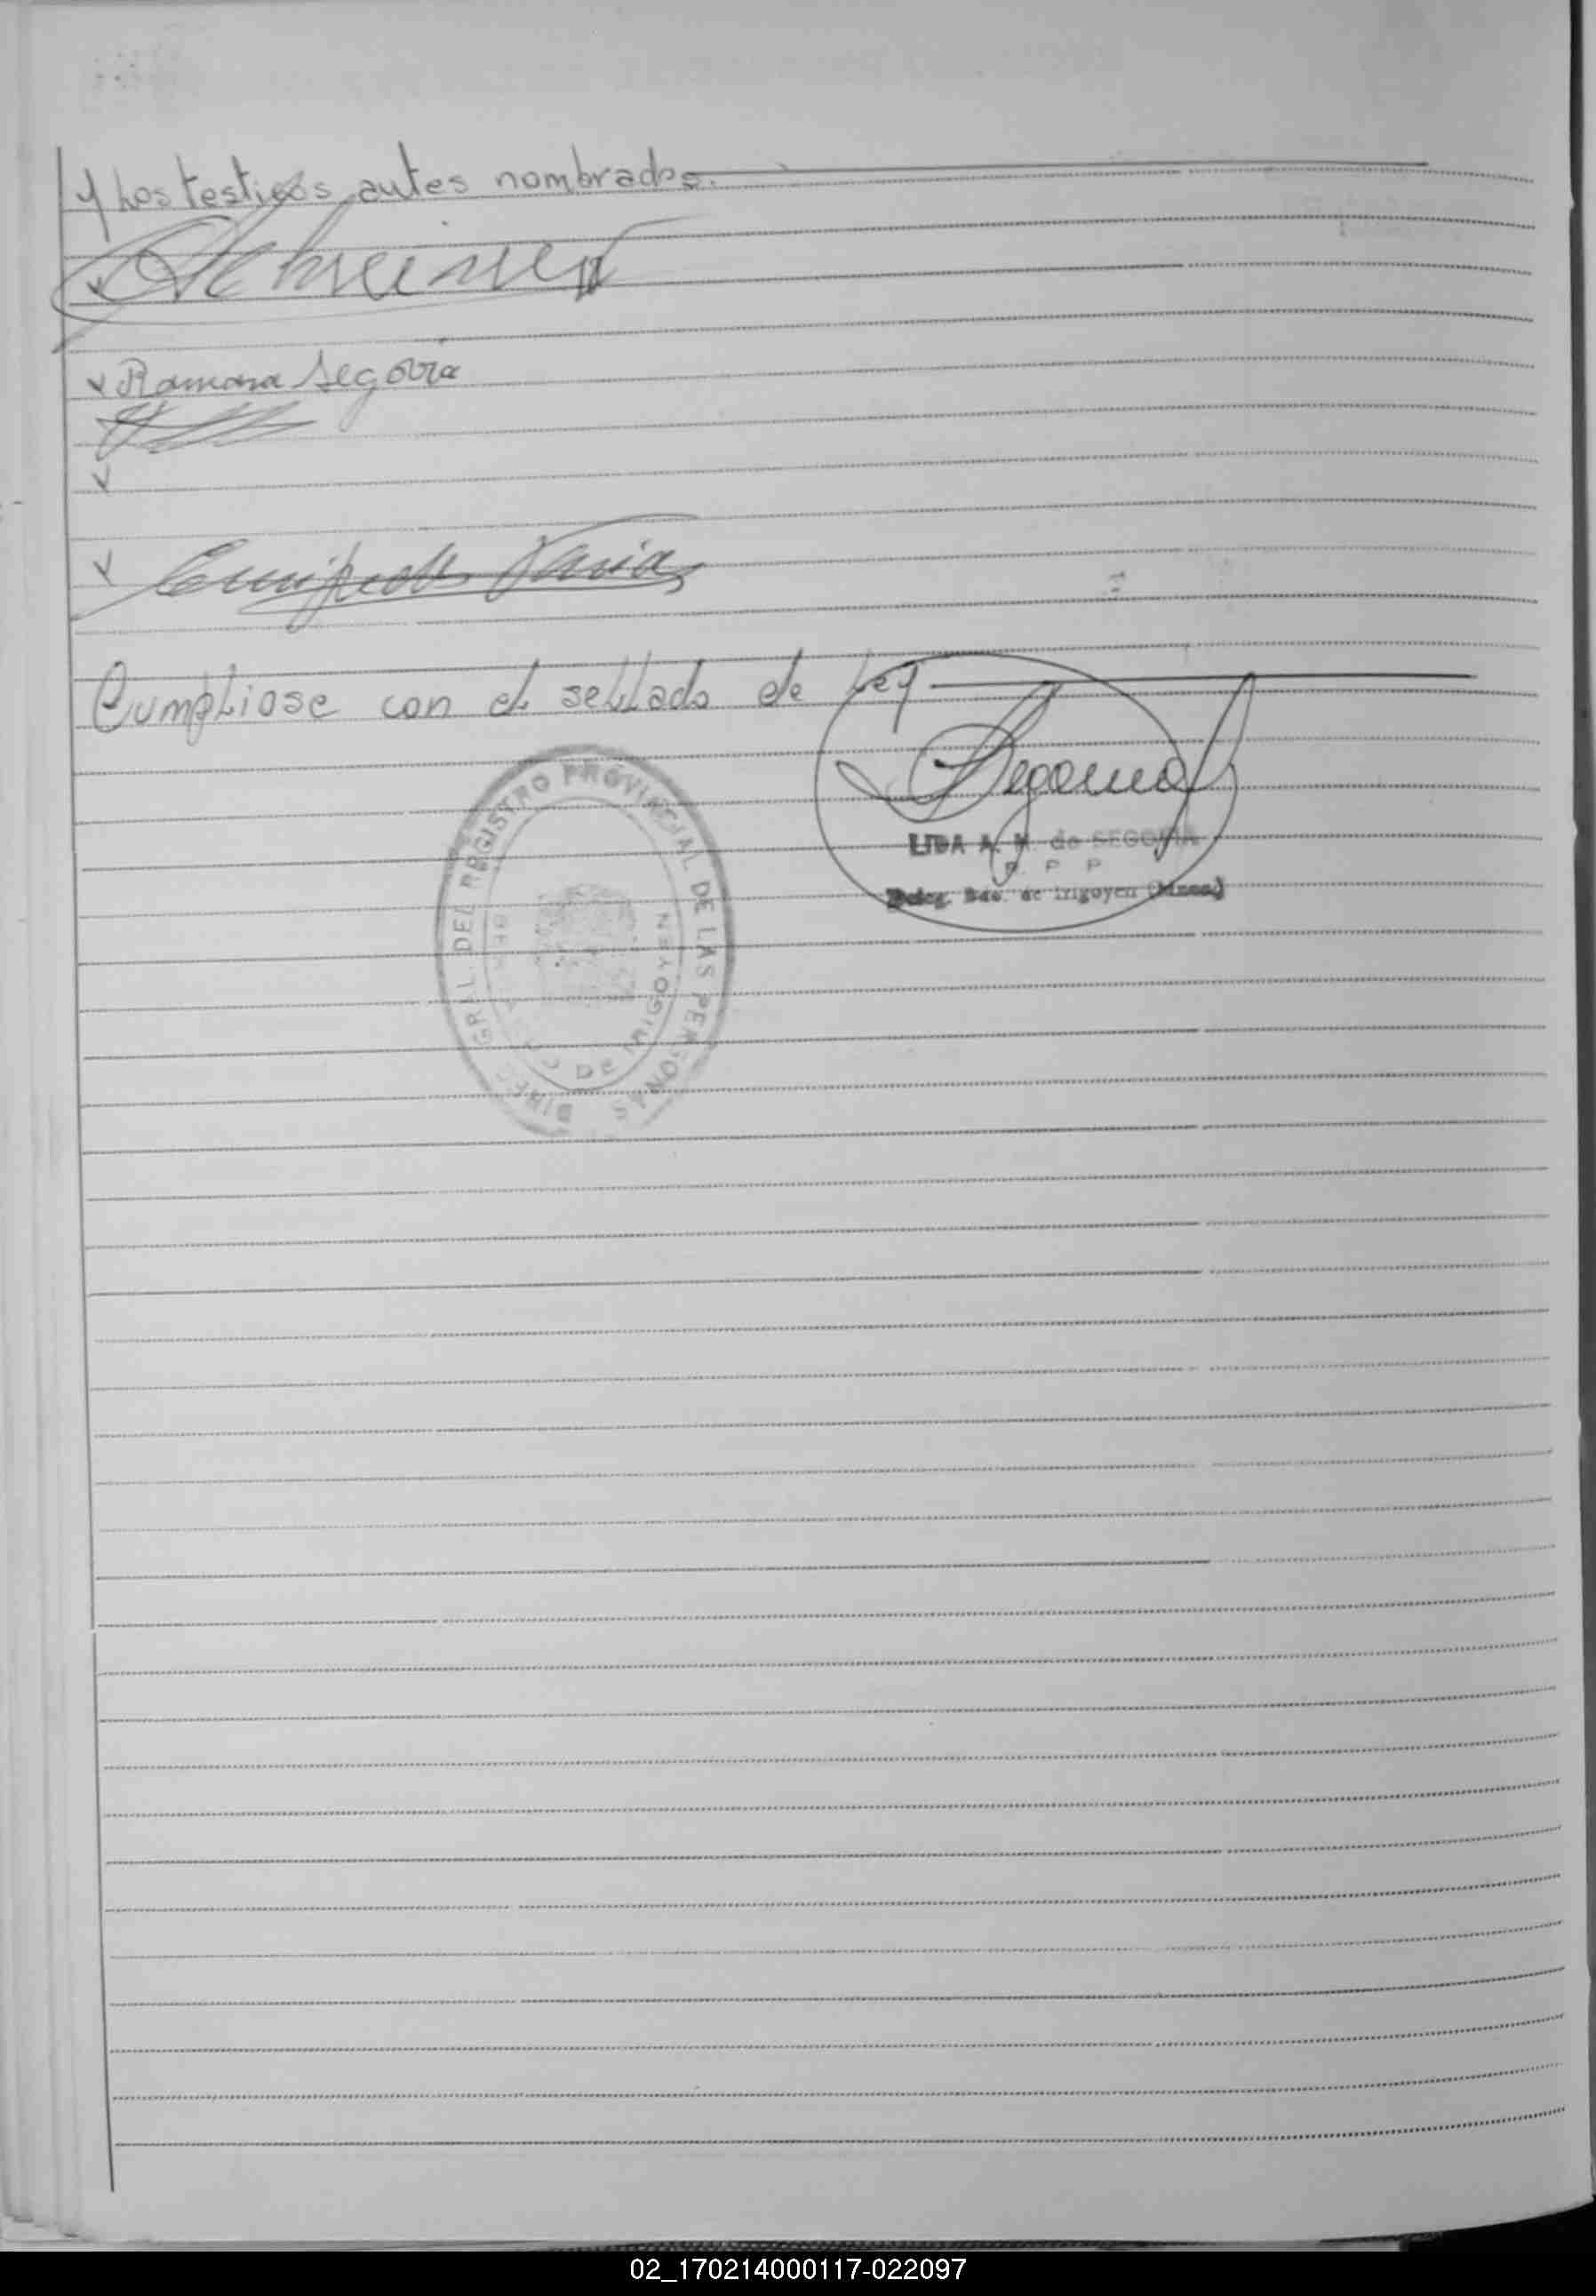 y Los testigos antes nombrados.
Schreiner
Ramona Segovia
Cumpliose con el sellado de Ley
Segovia
LIDA A. M. de SEGOVIA
R. P. P.
Deleg. Bdo. de Irigoyen (Mnes.)
DIREC GRAL. DEL REGISTRO PROVINCIAL DE LAS PERSONAS
DE IRIGOYEN
02_170214000117-022097